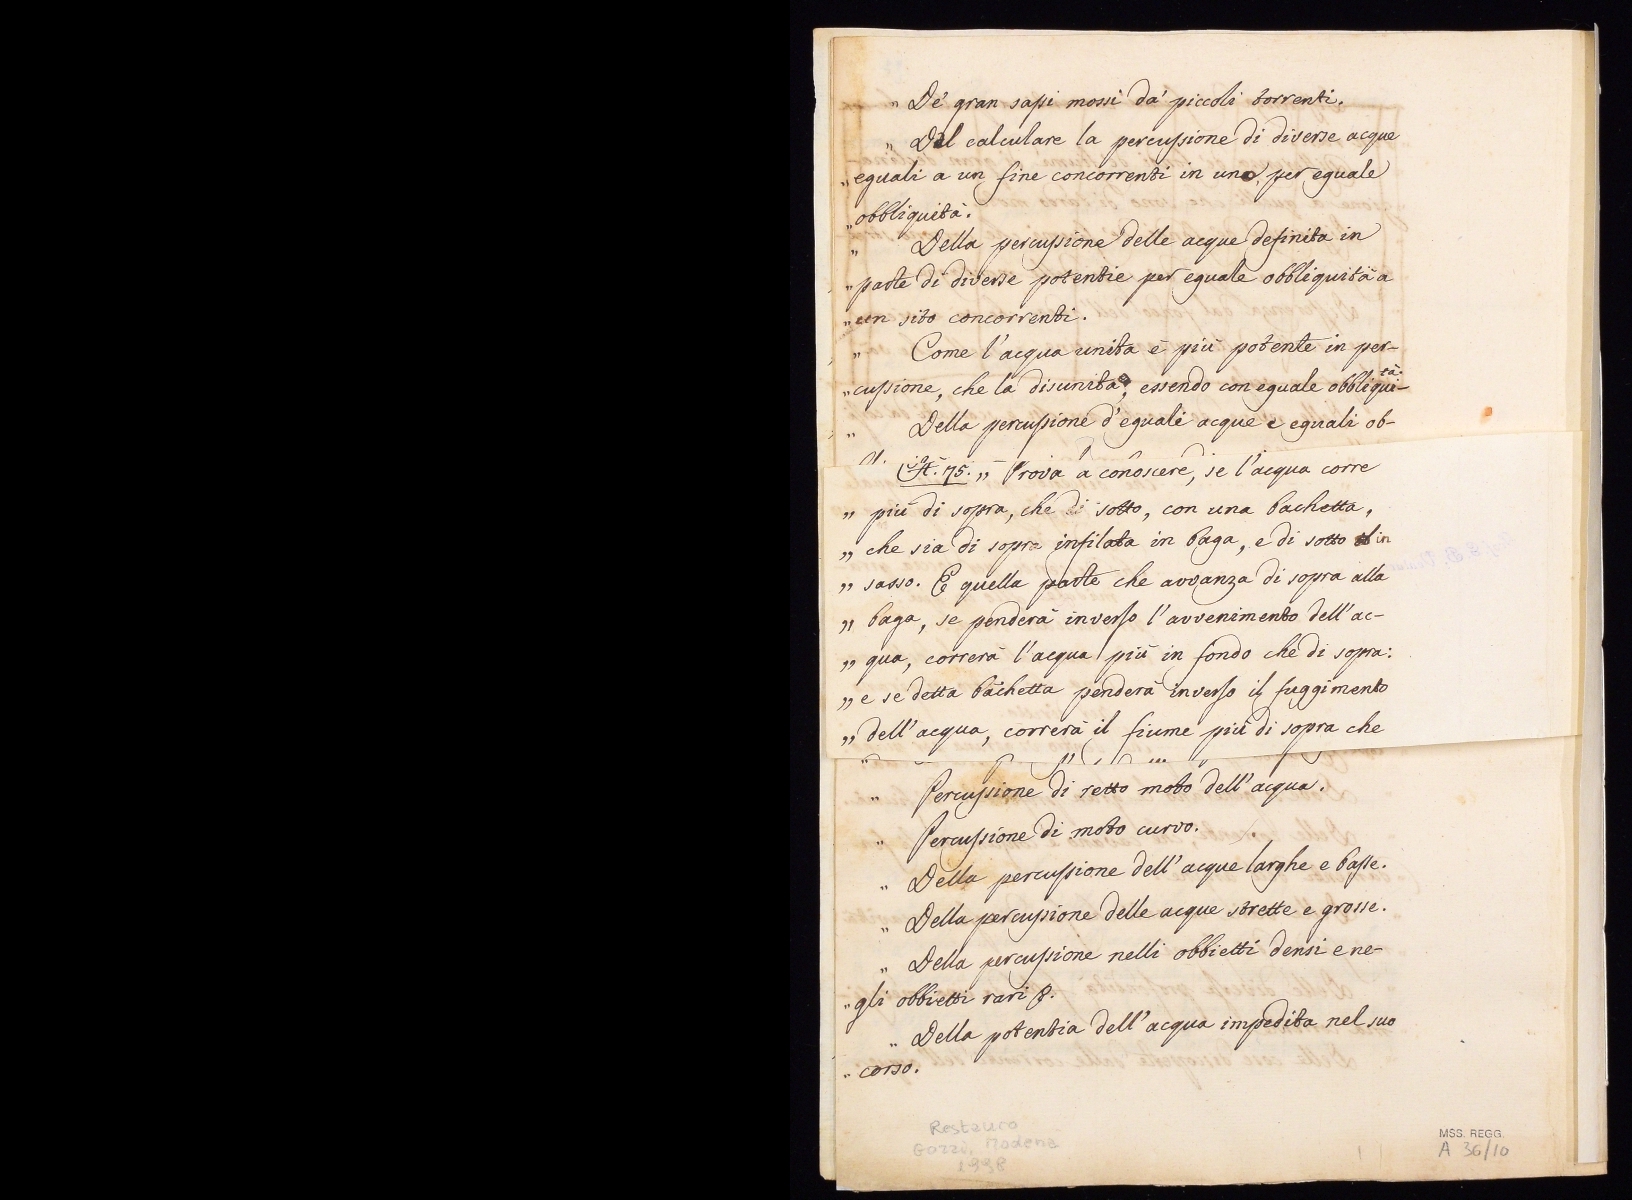 „ De' gran saßi mossi da' piccoli torrenti.
„ Del calculare la percußione di diverse acque
„ eguali a un fine concorrenti in uno, per eguale
„ obbliquità.
„ Della percußione delle acque definita in
„ parte di diverse potentie per eguale obbliquità a
„ un sito concorrenti.
„ Come l'acqua unita è più potente in per-
„ cußione, che la disunita, essendo con eguale obbliqui-
tà.
„ Della percußione d'eguali acque e eguali ob-
75. „ Prova a conoscere, se l'acqua corre
„ più di sopra, che di sotto, con una bachetta,
„ che sia di sopra infilata in baga, e di sotto in
„ sasso. E quella parte che avvanza di sopra alla
„ baga, se penderà inverso l'avvenimento dell'ac-
„ qua, correrà l'acqua più in fondo che di sopra:
„ e se detta bachetta penderà inverso il fuggimento
„ dell'acqua, correrà il fiume più di sopra che
„ Percußione di retto moto dell'acqua.
„ Percußione di moto curvo.
„ Della percußione dell'acque larghe e baße.
„ Della percußione delle acque strette e grosse.
„ Della percußione nelli obbietti densi e ne-
„ gli obbietti rari &.
„ Della potentia dell'acqua impedita nel suo
„ corso.
Restauro
Gozzi, Modena
1998
MSS. REGG.
A 36/10